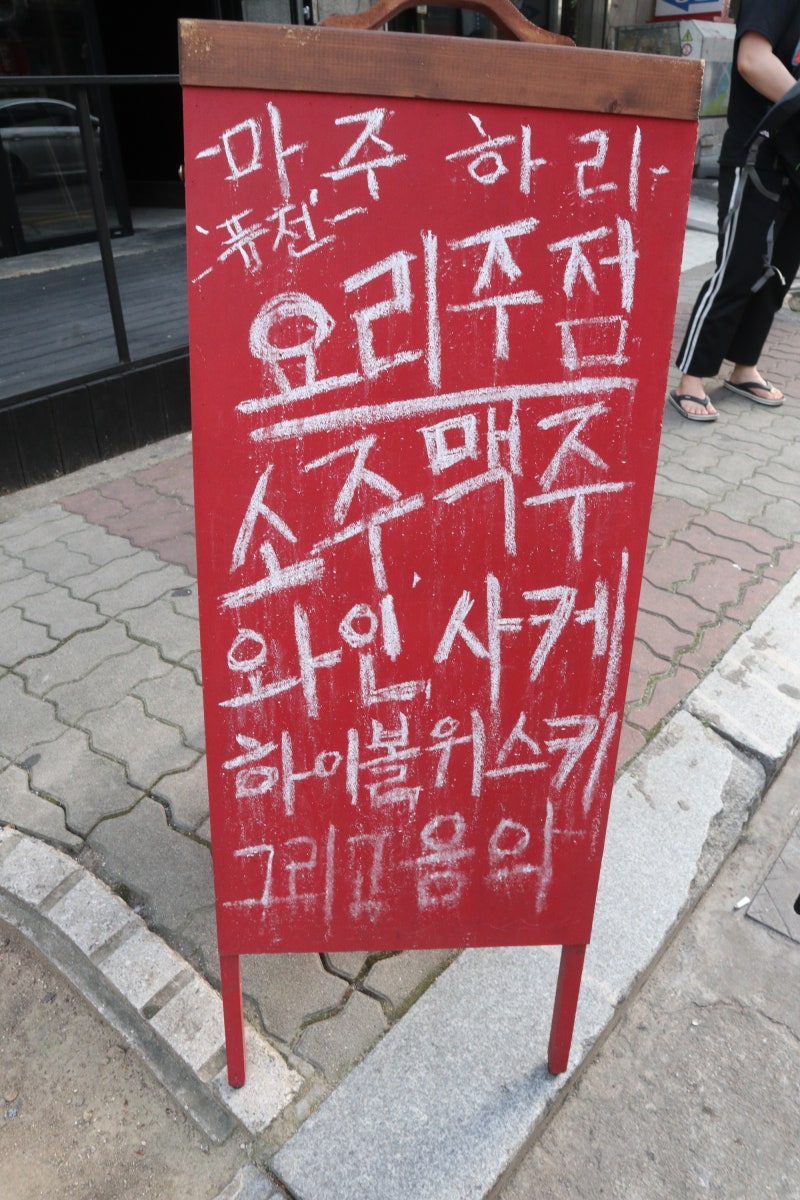 마주하리
퓨전
요리주점
소주맥주
와인, 사케
하이볼위스키
그리고음악